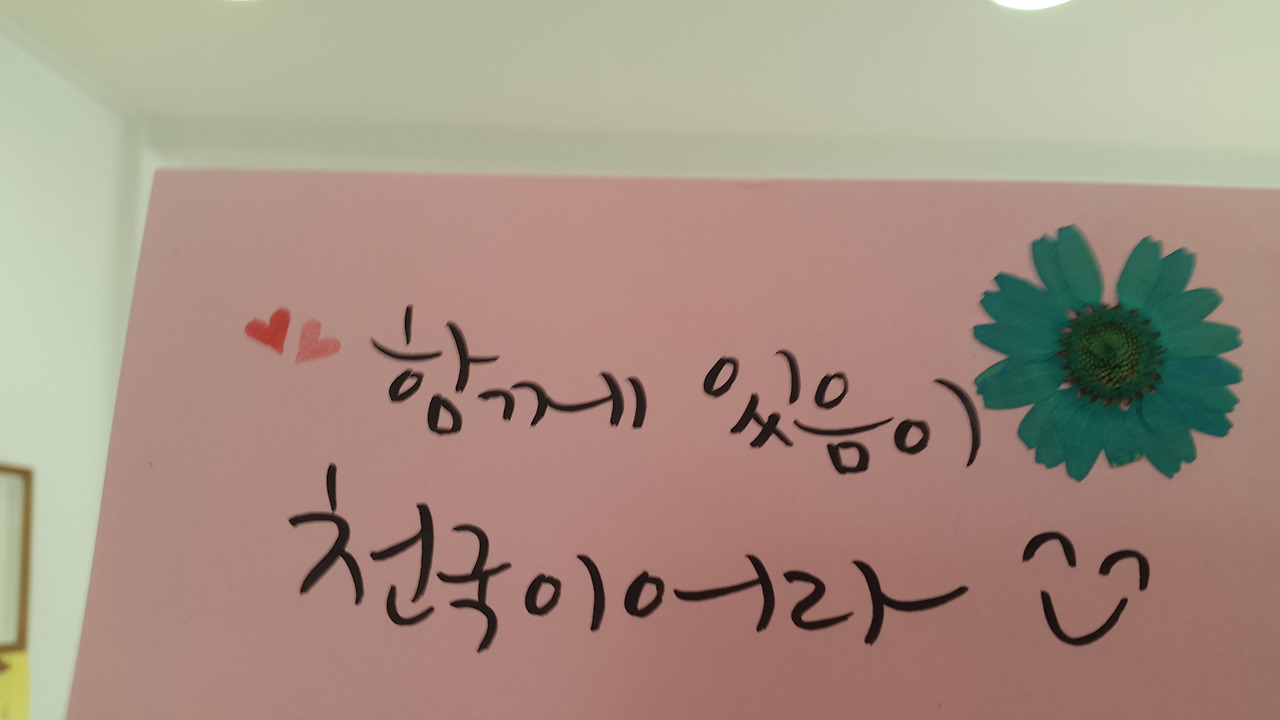 함께 있음이
천국이어라